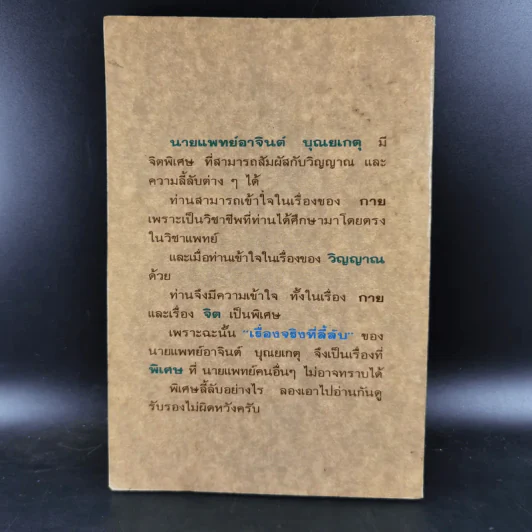 นายแพทย์อาจินต์ บุณยเกตุ มี
จิตพิเศษ ที่สามารถสัมผัสกับวิญญาณ และ
ความลี้ลับต่าง ๆ ได้
ท่านสามารถเข้าใจในเรื่องของ กาย
เพราะเป็นวิชาชีพที่ท่านได้ศึกษามาโดยตรง
ในวิชาแพทย์
และเมื่อท่านเข้าใจในเรื่องของ วิญญาณ
ด้วย
ท่านจึงมีความเข้าใจ ทั้งในเรื่อง กาย
และเรื่อง จิต เป็นพิเศษ
เพราะฉะนั้น "เรื่องจริงที่ลี้ลับ" ของ
นายแพทย์อาจินต์ บุณยเกตุ จึงเป็นเรื่องที่
พิเศษ ที่ นายแพทย์คนอื่นๆ ไม่อาจทราบได้
พิเศษลี้ลับอย่างไร ลองเอาไปอ่านกันดู
รับรองไม่ผิดหวังครับ